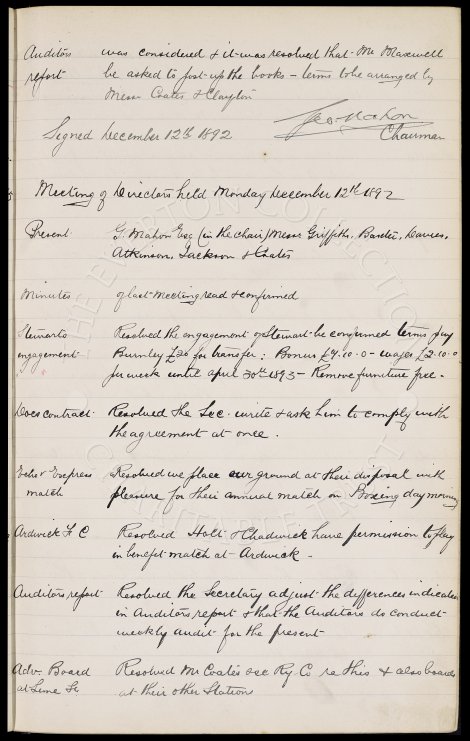 Auditors was considered & it was resolved that Mr Maxwell
report be asked to post up the books – terms to be arranged by
Messr Coates & Clayton
Signed December 12th 1892 Geo Mahon
Chairman
Meeting of Directors held Monday December 12th 1892
Present G. Mahon Esq (in the chair) Messr Griffiths, Baxter, Davies,
Atkinson, Jackson & Coates
Minutes of last meeting read & confirmed
Stewarts Resolved the engagement of Stewart be confirmed terms pay
engagement Burnley £20 for transfer: Bonus £7.10.0 – wages £2.10.0
per week until April 30th 1893 – Remove furniture free.
Does contract Resolved the Sec. write & ask him to comply with
the agreement at once.
Echo & Express Resolved we place our ground at their disposal with
match pleasure for their annual match on Boxing day morning
Ardwick F C Resolved Holt & Chadwick have permission to play
in benefit match at Ardwick –
Auditors report Resolved the Secretary adjust the differences indicated
in Auditors report & that the Auditors do conduct
weekly audit for the present
Adv. Board Resolved Mr Coates see Ry Co re this & also boards
at Lime St at their other Stations
THE EVERTON COLLECTION
CHARITABLE TRUST